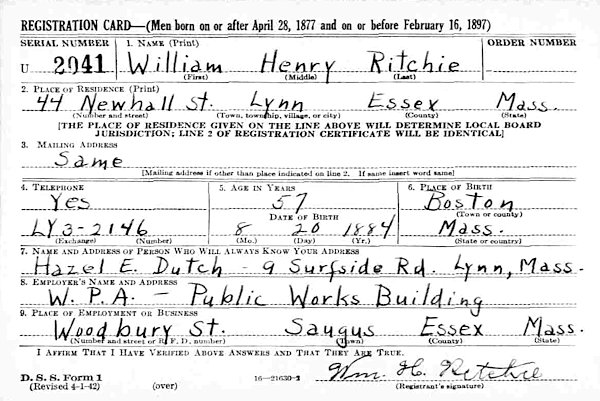 REGISTRATION CARD—(Men born on or after April 28, 1877 and on or before February 16, 1897)
SERIAL NUMBER 1. NAME (Print) ORDER NUMBER
U 2041 William Henry Ritchie
(First) (Middle) (Last)
2. PLACE OF RESIDENCE (Print)
44 Newhall St. Lynn Essex Mass.
(Number and street) (Town, township, village, or city) (County) (State)
[THE PLACE OF RESIDENCE GIVEN ON THE LINE ABOVE WILL DETERMINE LOCAL BOARD
JURISDICTION; LINE 2 OF REGISTRATION CERTIFICATE WILL BE IDENTICAL]
3. MAILING ADDRESS
Same
[Mailing address if other than place indicated on line 2. If same insert word same]
4. TELEPHONE 5. AGE IN YEARS 6. PLACE OF BIRTH
Yes 57 Boston
DATE OF BIRTH (Town or county)
LY3-2146 8 20 1884 Mass.
(Exchange) (Number) (Mo.) (Day) (Yr.) (State or country)
7. NAME AND ADDRESS OF PERSON WHO WILL ALWAYS KNOW YOUR ADDRESS
Hazel E. Dutch - 9 Surfside Rd. Lynn, Mass.
8. EMPLOYER'S NAME AND ADDRESS
W. P. A. - Public Works Building
9. PLACE OF EMPLOYMENT OR BUSINESS
Woodbury St. Saugus Essex Mass.
(Number and street or R. F. D. number) (Town) (County) (State)
I AFFIRM THAT I HAVE VERIFIED ABOVE ANSWERS AND THAT THEY ARE TRUE.
D. S. S. Form 1
(Revised 4-1-42) (over) 16—21630-2 Wm. H. Ritchie
(Registrant's signature)